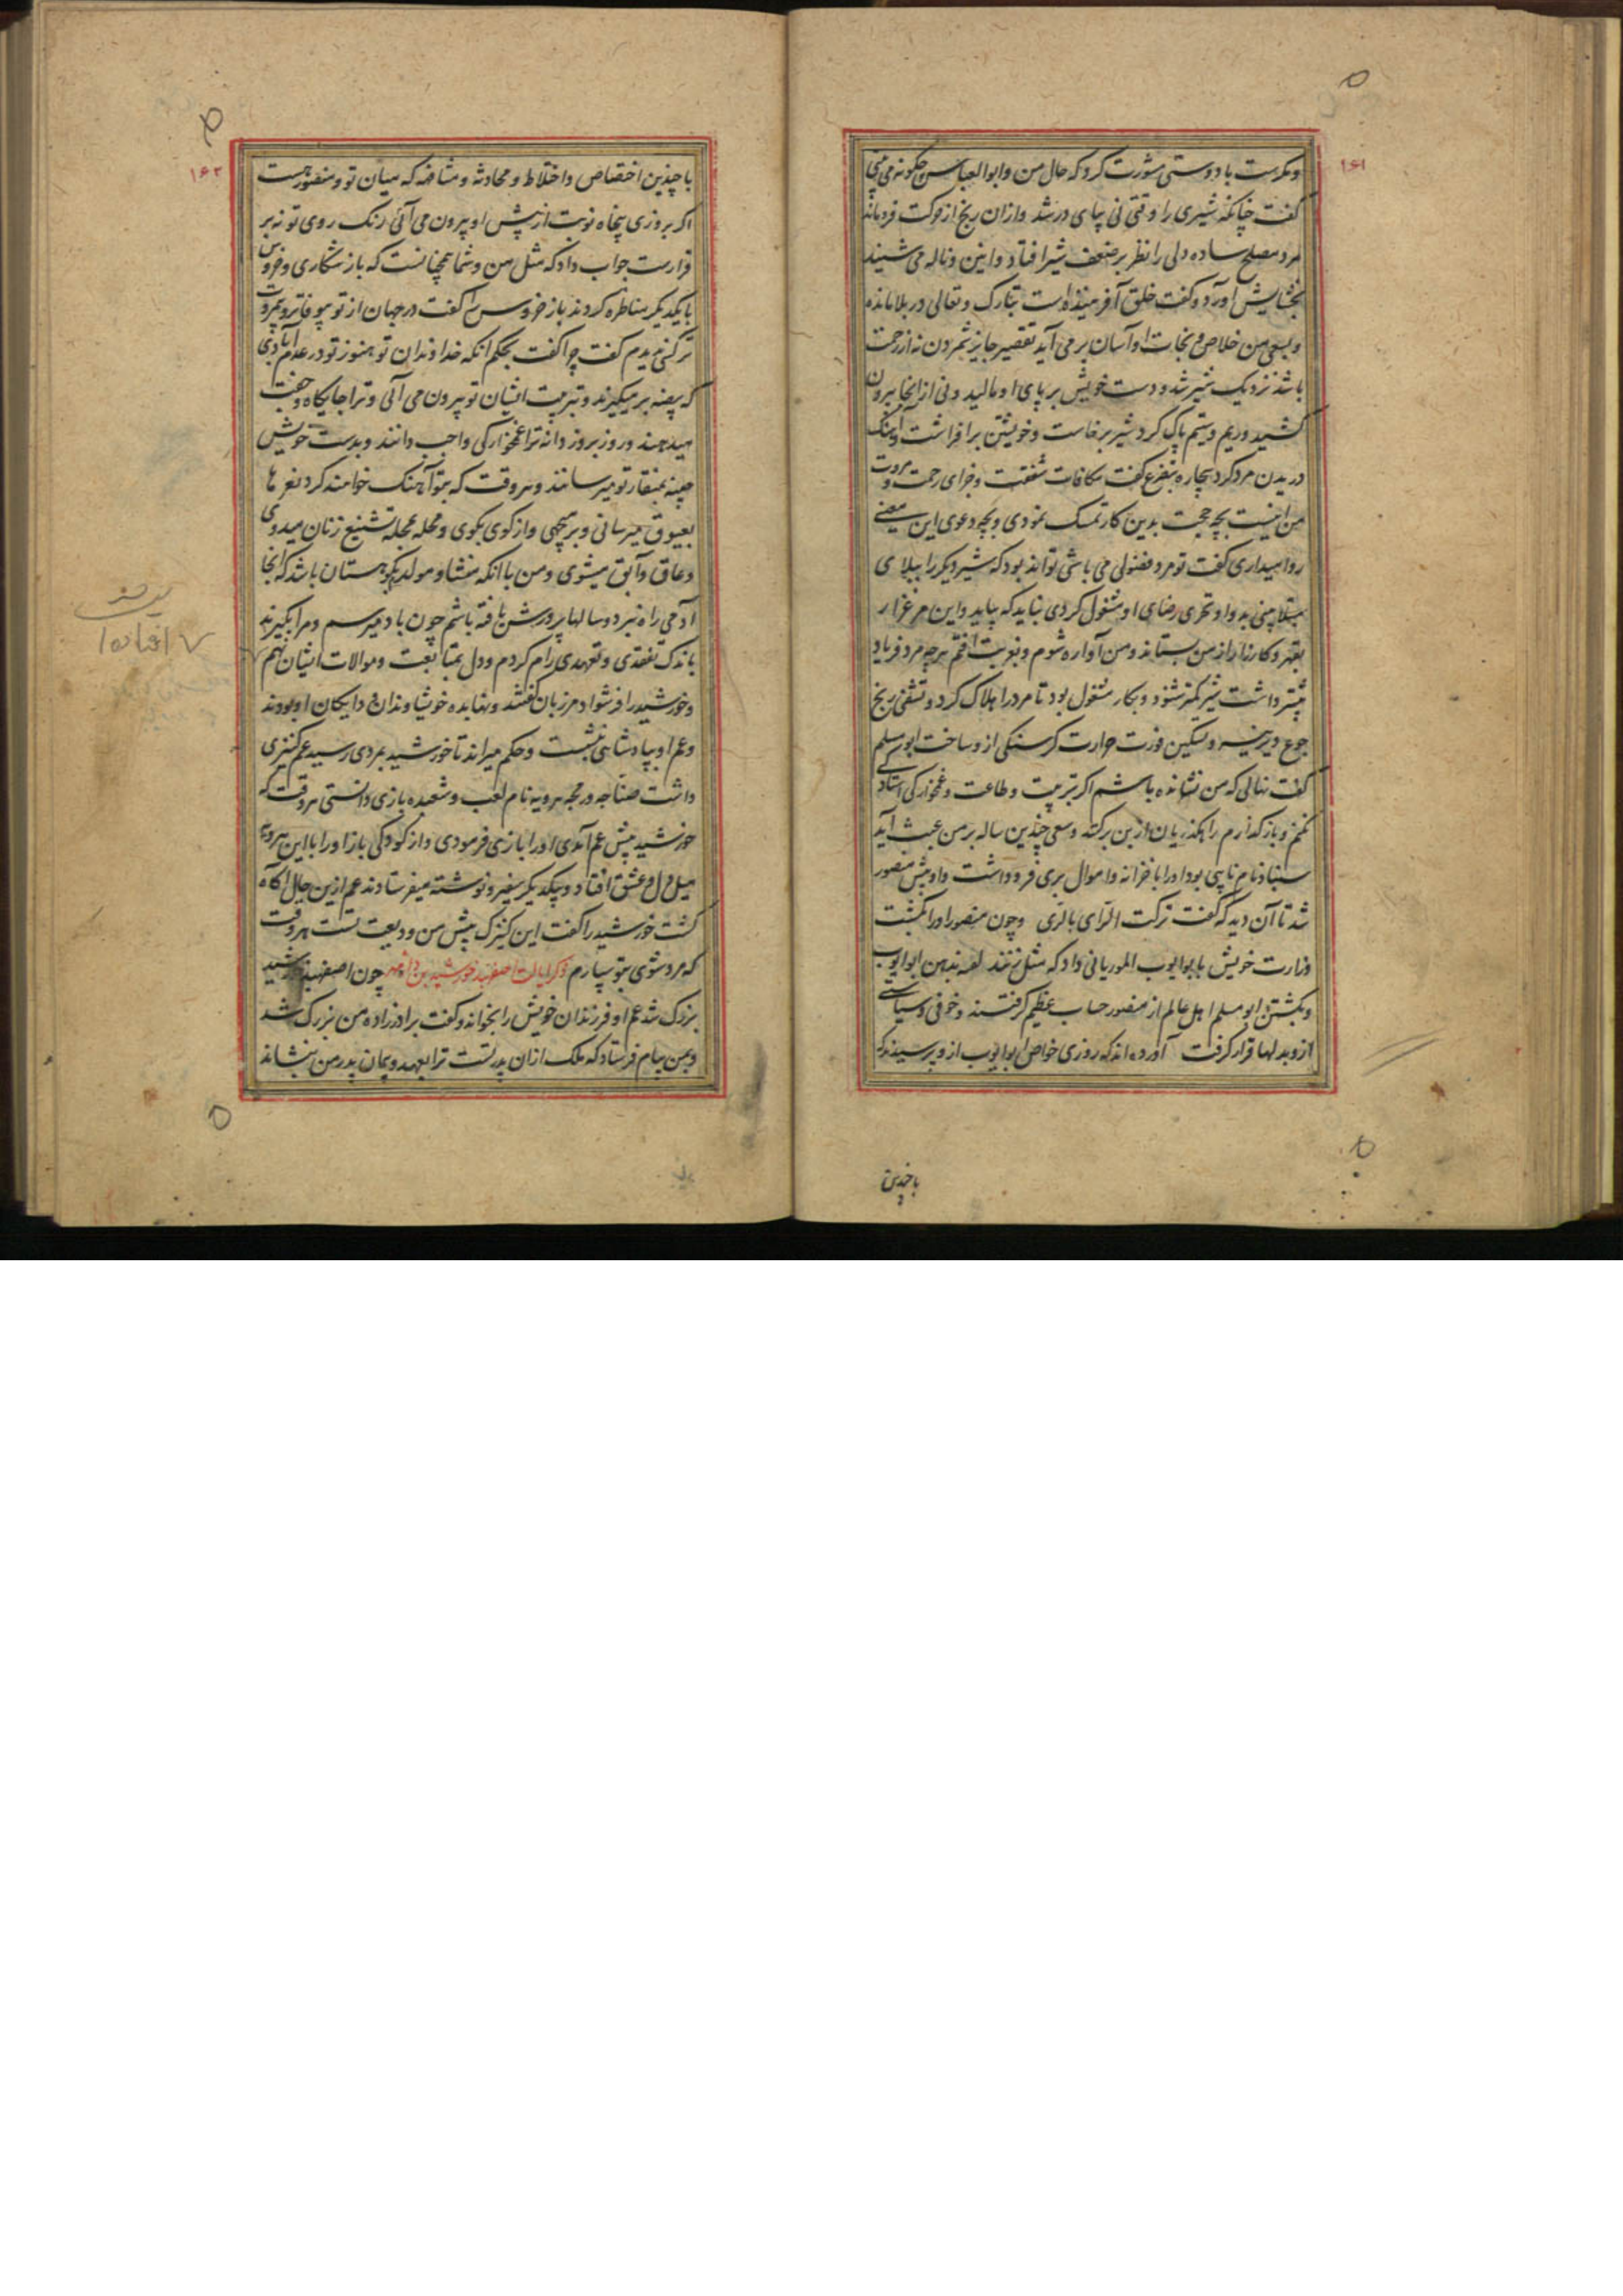 ۱۶۱
ومکرست با دوستی مشورت کرد که حال من وابو العباس چکونه می بینی
کفت چنانکه شیری را وقتی نی بپای درشد وازان رنج از حرکت فروماند
مرد مصلح ساده دلی را نظر بر ضعف شیر افتاد وانین وناله می شنید
بخشایش آورد وکفت خلق آفریننده است تبارک وتعالی در بلا مانده
وبسعی من خلاص ونجات او آسان بر می آید تقصیر جایز شمردن نه از رحمت
باشد نزدیک شیر شد ودست خویش بر پای او مالید ونی از آنجا بیرون
کشید وریم وستیم پاک کرد شیر برخاست وخویشتن برافراشت وآهنک
دریدن مرد کرد بیچاره بتضرع کفت مکافات شفقت وجزای رحمت ومروت
من اینست بچه حجت بدین کار تمسک نمودی وبچه دعوی این معنی
روا میداری کفت تو مرد فضولی می باشی تواند بود که شیر دیکر را ببلای
مبتلا بینی بد واو تحری رضای او مشغول کردی نباید که بیاید واین مرغزار
بقهر وکارزار از من بستاند ومن آواره شوم وبغربت افتم هر چه مرد فریاد
بیشتر داشت شیر کمتر شنود وبکار مشغول بود تا مرد را هلاک کرد وتشفی رنج
جوع دیرینه وتسکین فورت حرارت کرسنکی ازو ساخت ابو مسلم
کفت نهالی که من نشانده باشم اکر بتربیت وطاعت وغمخوارکی استادکی
نکنم وبازکذارم رایکذریان ازبن برکند وسعی چندین ساله بر من عبث آید
سنباد نام نایبی بود اورا با خزانه واموال بری فرو داشت واو پیش منصور
شد تا آن دید که کفت ترکت الرای بالری وچون منصور اورا بکشت
وزارت خویش با ابو ایوب الموریانی داد که مثل زنند لعنه بدهن ابو ایوب
وبکشتن ابو مسلم اهل عالم از منصور حساب عظیم کرفتند وخوفی وسیاستی
ازو بدلها قرار کرفت آورده اند که روزی خواص ابو ایوب ازو پرسیدند که
با چندین
۱۶۲
با چندین اختصاص واختلاط ومحادثه ومشافهه که میان تو ومنصور هست
اکر بروزی پنجاه نوبت از پیش او بیرون می آئی رنک روی تو نه بر
قرارست جواب داد که مثل من وشما همچنانست که باز شکاری وخروس
با یکدیکر مناظره کردند باز خروس را کفت در جهان از تو بیوفاتر وبیمروت
تر کسی ندیدم کفت چرا کفت بحکم آنکه خداوندان تو هنوز تو در عدم آبادی
که بیضه بر میکیرند وتربیت ایشان تو بیرون می آئی وترا جایکاه وجفت
میدهند وروز بروز دانه ترا غمخوارکی واجب دانند وبدست خویش
چینه بمنقار تو میرسانند وهر وقت که بتو آهنک خواهند کرد نعرها
بعیوق میرسانی وبر میجهی واز کوی بکوی ومحله بمحله تشنیع زنان میدوی
وعاق وآبق میشوی ومن با آنکه منشا ومولد بکوهستان باشد که آنجا
آدمی راه نبرد وسالها پرورش یافته باشم چون با دمیرسم ومرا بکیرند
باندک تفقدی وتعهدی رام کردم ودل بمتابعت وموالات ایشان نهم
وخورشید را فرشواد مرزبان کفتند ونهابده خویشاوندان ودایکان او بودند
وعم او بپادشاهی نشست وحکم میراند تا خورشید بمردی رسید عم کنیزی
داشت صناجه ورمجه هرویه نام لعب وشعبده بازی دانستی هر وقت که
خورشید پیش عم آمدی اورا بازی فرمودی واز کودکی باز اورا با این هرویه
میل دل وعشق افتاد وبیکدیکر سفیر ونوشته میفرستادند عم ازین حال آکاه
کشت خورشید را کفت این کنیزک پیش من ودیعت تست هر وقت
که مرد شوی بتو سپارم ذکر ایالت اصفهبد خورشید بن دادمهر چون اصفهبد خورشید
بزرک شد عم او فرزندان خویش را بخواند وکفت برادرزاده من بزرک شد
وبمن پیام فرستاد که ملک ازان پدر تست ترا بعهد وپیمان پدر من بنشاند